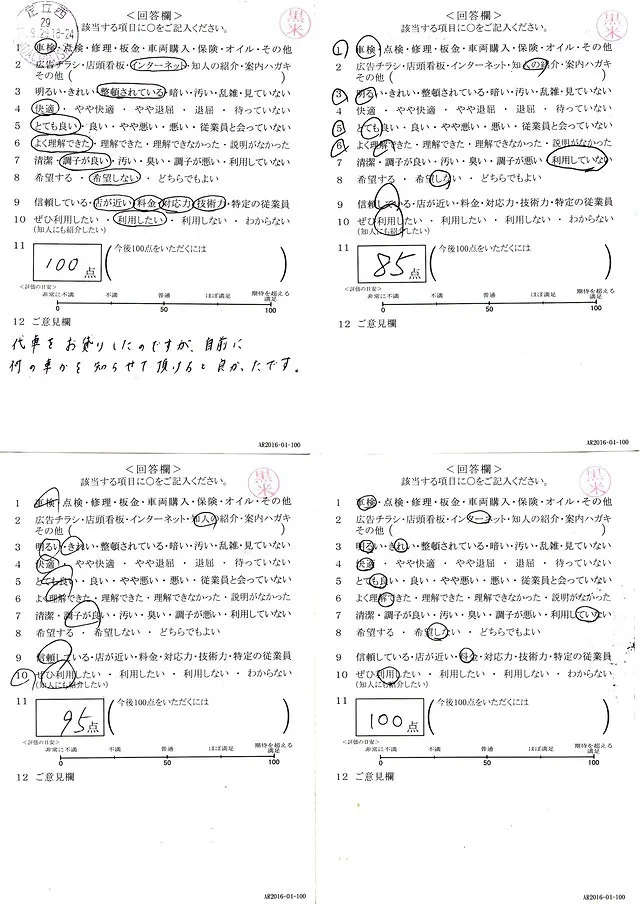 足立西
29
9.29 18-24
<回答欄>
黒米
該当する項目に○をご記入ください。
1 車検・点検・修理・板金・車両購入・保険・オイル・その他
2 広告チラシ・店頭看板・インターネット・知人の紹介・案内ハガキ
その他( )
3 明るい・きれい・整頓されている・暗い・汚い・乱雑・見ていない
4 快適 ・ やや快適 ・ やや退屈 ・ 退屈 ・ 待っていない
5 とても良い・良い・やや悪い・悪い・従業員と会っていない
6 よく理解できた・理解できた・理解できなかった・説明がなかった
7 清潔・調子が良い・汚い・臭い・調子が悪い・利用していない
8 希望する ・ 希望しない ・ どちらでもよい
9 信頼している・店が近い・料金・対応力・技術力・特定の従業員
10 ぜひ利用したい ・ 利用したい ・ 利用しない ・ わからない
(知人にも紹介したい)
11 100 点 (今後100点をいただくには )
<評価の目安>
非常に不満 不満 普通 ほぼ満足 期待を超える満足
0 50 100
12 ご意見欄
代車をお貸りしたのですが、自前に
何の車かを知らせて頂けると良かったです。
AR2016-04-100
<回答欄>
黒米
該当する項目に○をご記入ください。
1 車検・点検・修理・板金・車両購入・保険・オイル・その他
2 広告チラシ・店頭看板・インターネット・知人の紹介・案内ハガキ
その他( )
3 明るい・きれい・整頓されている・暗い・汚い・乱雑・見ていない
4 快適 ・ やや快適 ・ やや退屈 ・ 退屈 ・ 待っていない
5 とても良い・良い・やや悪い・悪い・従業員と会っていない
6 よく理解できた・理解できた・理解できなかった・説明がなかった
7 清潔・調子が良い・汚い・臭い・調子が悪い・利用していない
8 希望する ・ 希望しない ・ どちらでもよい
9 信頼している・店が近い・料金・対応力・技術力・特定の従業員
10 ぜひ利用したい ・ 利用したい ・ 利用しない ・ わからない
(知人にも紹介したい)
11 85 点 (今後100点をいただくには )
<評価の目安>
非常に不満 不満 普通 ほぼ満足 期待を超える満足
0 50 100
12 ご意見欄
AR2016-04-100
<回答欄>
黒米
該当する項目に○をご記入ください。
1 車検・点検・修理・板金・車両購入・保険・オイル・その他
2 広告チラシ・店頭看板・インターネット・知人の紹介・案内ハガキ
その他( )
3 明るい・きれい・整頓されている・暗い・汚い・乱雑・見ていない
4 快適 ・ やや快適 ・ やや退屈 ・ 退屈 ・ 待っていない
5 とても良い・良い・やや悪い・悪い・従業員と会っていない
6 よく理解できた・理解できた・理解できなかった・説明がなかった
7 清潔・調子が良い・汚い・臭い・調子が悪い・利用していない
8 希望する ・ 希望しない ・ どちらでもよい
9 信頼している・店が近い・料金・対応力・技術力・特定の従業員
10 ぜひ利用したい ・ 利用したい ・ 利用しない ・ わからない
(知人にも紹介したい)
11 95 点 (今後100点をいただくには )
<評価の目安>
非常に不満 不満 普通 ほぼ満足 期待を超える満足
0 50 100
12 ご意見欄
AR2016-04-100
<回答欄>
黒米
該当する項目に○をご記入ください。
1 車検・点検・修理・板金・車両購入・保険・オイル・その他
2 広告チラシ・店頭看板・インターネット・知人の紹介・案内ハガキ
その他( )
3 明るい・きれい・整頓されている・暗い・汚い・乱雑・見ていない
4 快適 ・ やや快適 ・ やや退屈 ・ 退屈 ・ 待っていない
5 とても良い・良い・やや悪い・悪い・従業員と会っていない
6 よく理解できた・理解できた・理解できなかった・説明がなかった
7 清潔・調子が良い・汚い・臭い・調子が悪い・利用していない
8 希望する ・ 希望しない ・ どちらでもよい
9 信頼している・店が近い・料金・対応力・技術力・特定の従業員
10 ぜひ利用したい ・ 利用したい ・ 利用しない ・ わからない
(知人にも紹介したい)
11 100 点 (今後100点をいただくには )
<評価の目安>
非常に不満 不満 普通 ほぼ満足 期待を超える満足
0 50 100
12 ご意見欄
AR2016-04-100